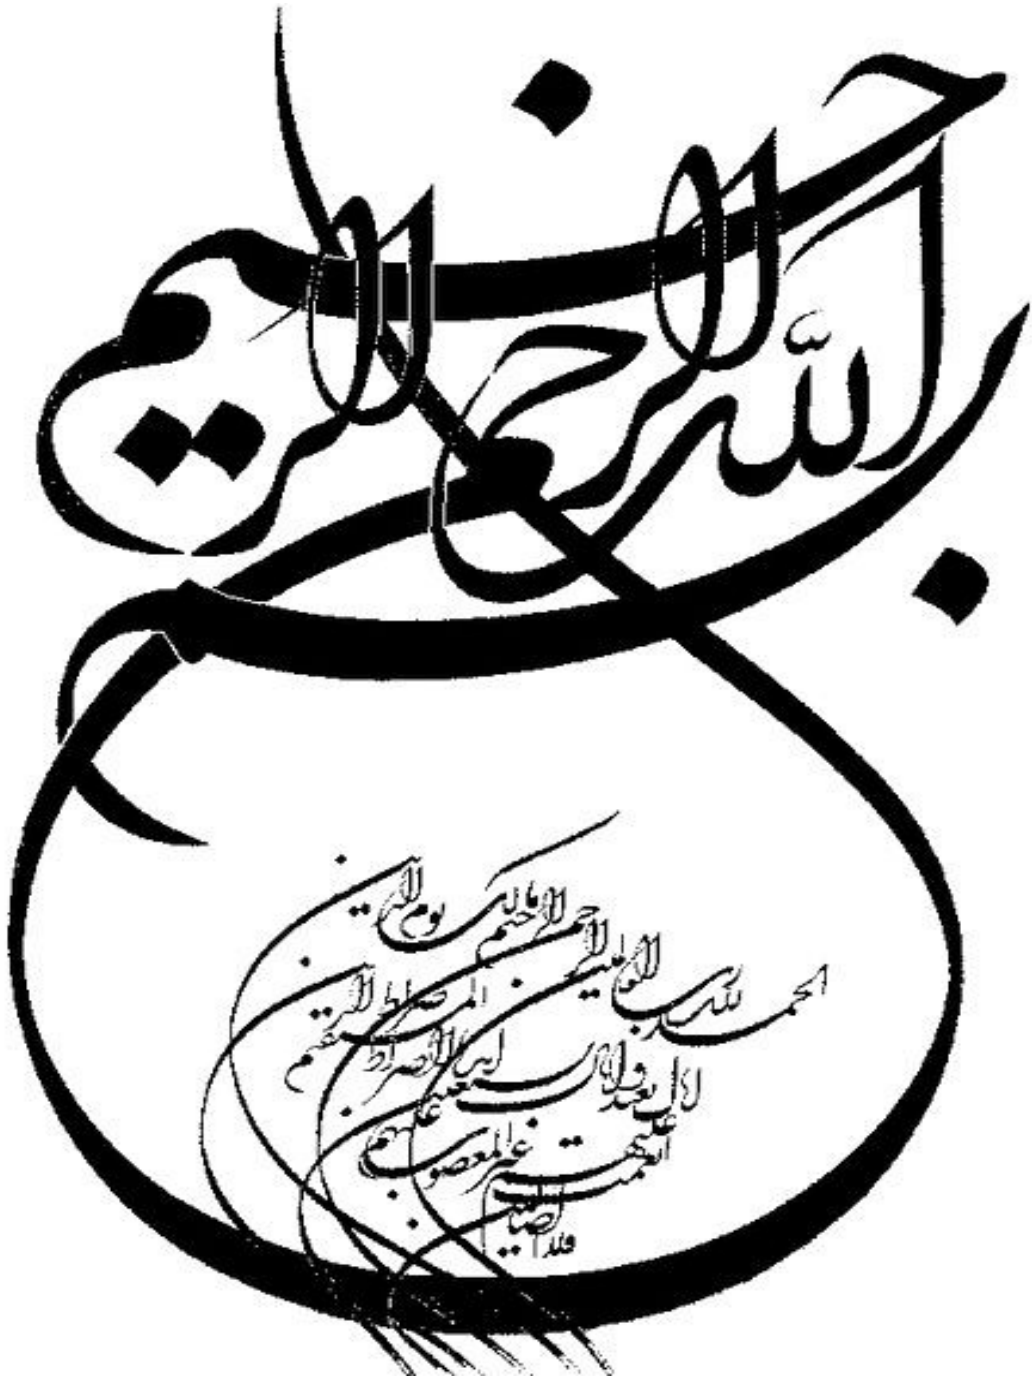 بسم الله الرحمن الرحيم
الحمد لله رب العالمين الرحمن الرحيم مالك يوم الدين
إياك نعبد وإياك نستعين اهدنا الصراط المستقيم صراط الذين
أنعمت عليهم غير المغضوب عليهم ولا الضالين